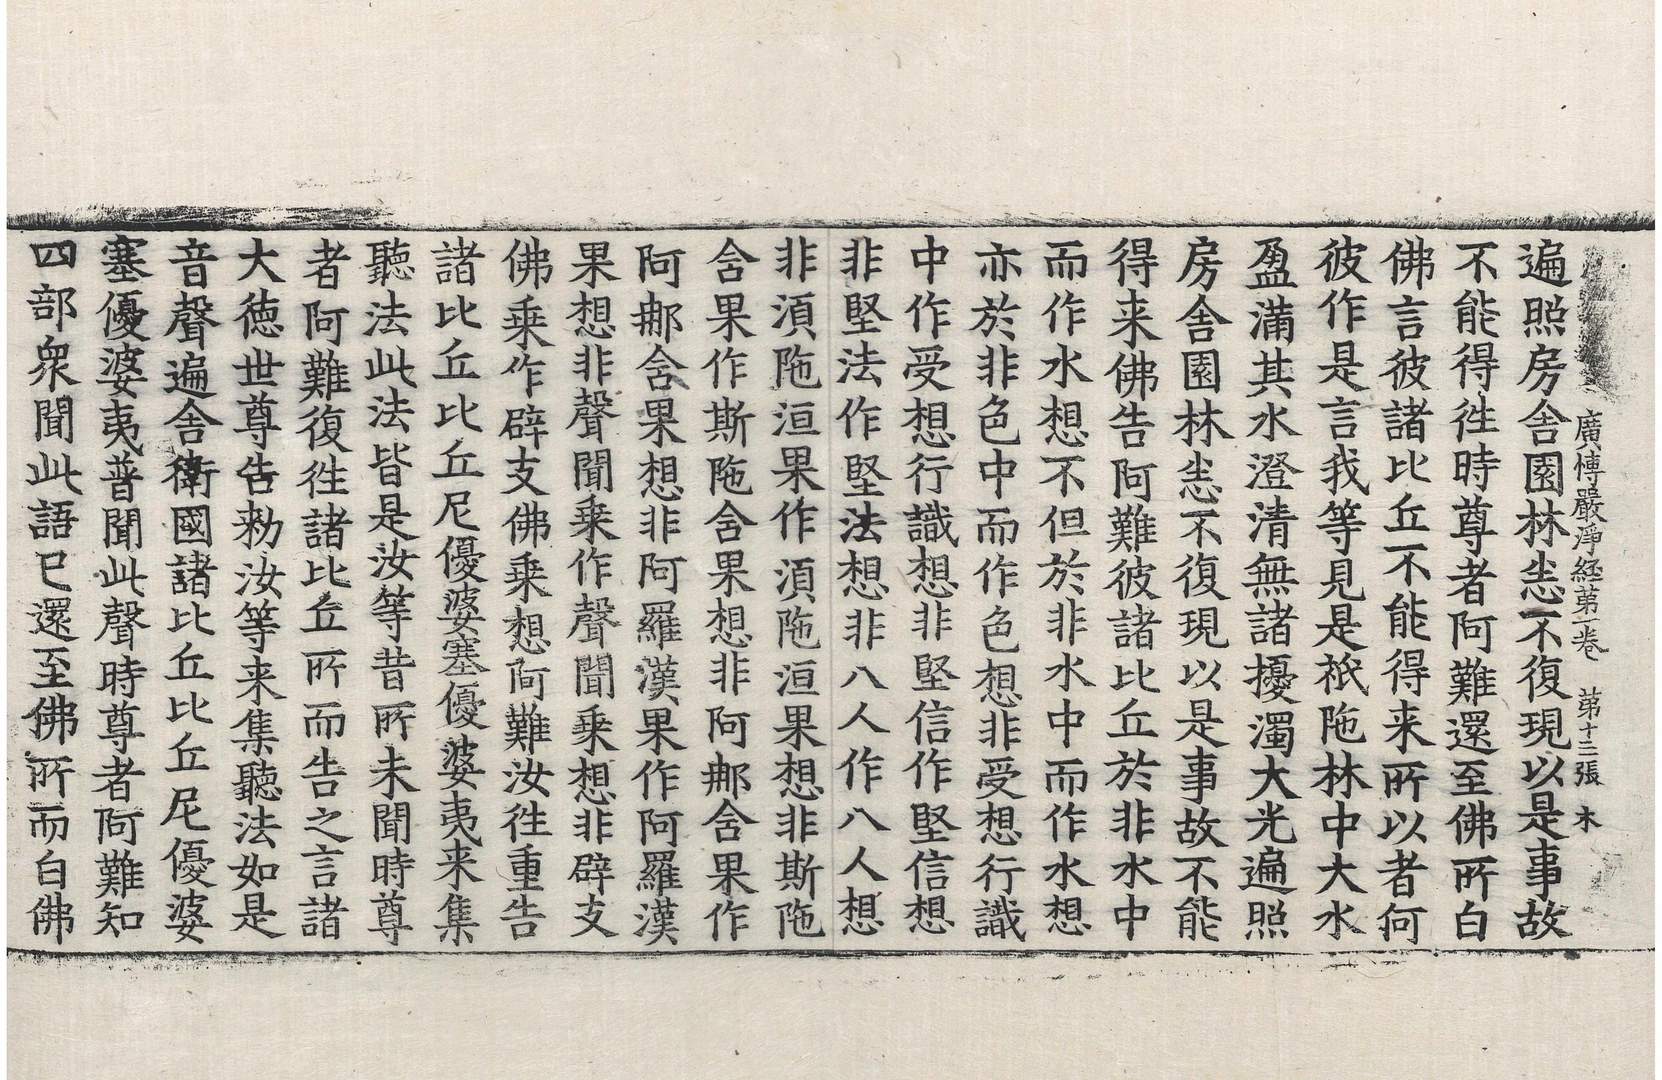 廣愽嚴淨経苐一卷 苐十三張 木
遍照房舎園林悉不復現以是事故
不能得徃時尊者阿難還至佛所白
佛言彼諸比丘不能得来所以者何
彼作是言我等見是祇陁林中大水
盈滿其水澄清無諸擾濁大光遍照
房舎園林悉不復現以是事故不能
得来佛告阿難彼諸比丘於非水中
而作水想不但於非水中而作水想
亦於非色中而作色想非受想行識
中作受想行識想非堅信作堅信想
非堅法作堅法想非八人作八人想
非湏陁洹果作湏陁洹果想非斯陁
含果作斯陁含果想非阿䣺含果作
阿䣺含果想非阿羅漢果作阿羅漢
果想非聲聞乗作聲聞乗想非辟支
佛乗作辟支佛乗想阿難汝徃重告
諸比丘比丘尼優婆塞優婆夷来集
聽法此法皆是汝等昔所未聞時尊
者阿難復徃諸比丘所而告之言諸
大徳世尊告勑汝等来集聽法如是
音聲遍舎衛國諸比丘比丘尼優婆
塞優婆夷普聞此聲時尊者阿難知
四部衆聞此語已還至佛所而白佛